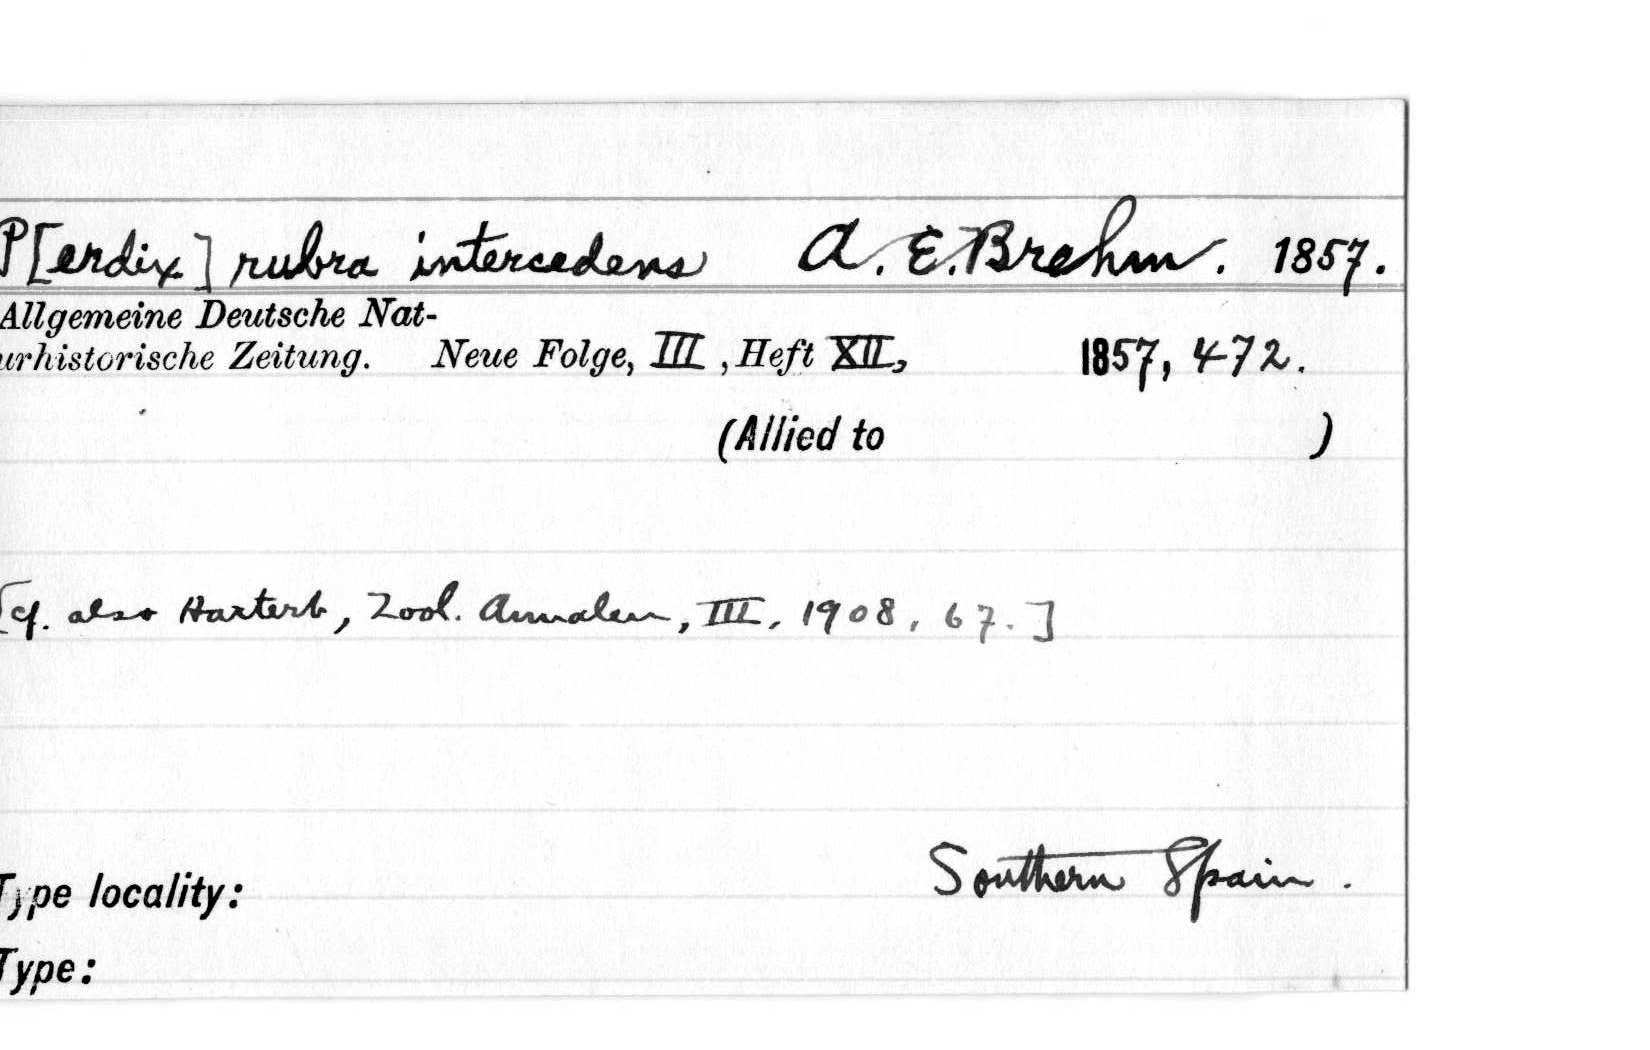 P[erdix] rubra intercedens A. E. Brehm. 1857.
Allgemeine Deutsche Nat-
urhistorische Zeitung. Neue Folge, III, Heft XII, 1857, 472.
(Allied to )
[cf. also Hartert, Zool. Annalen, III, 1908, 67.]
Southern Spain.
Type locality:
Type: